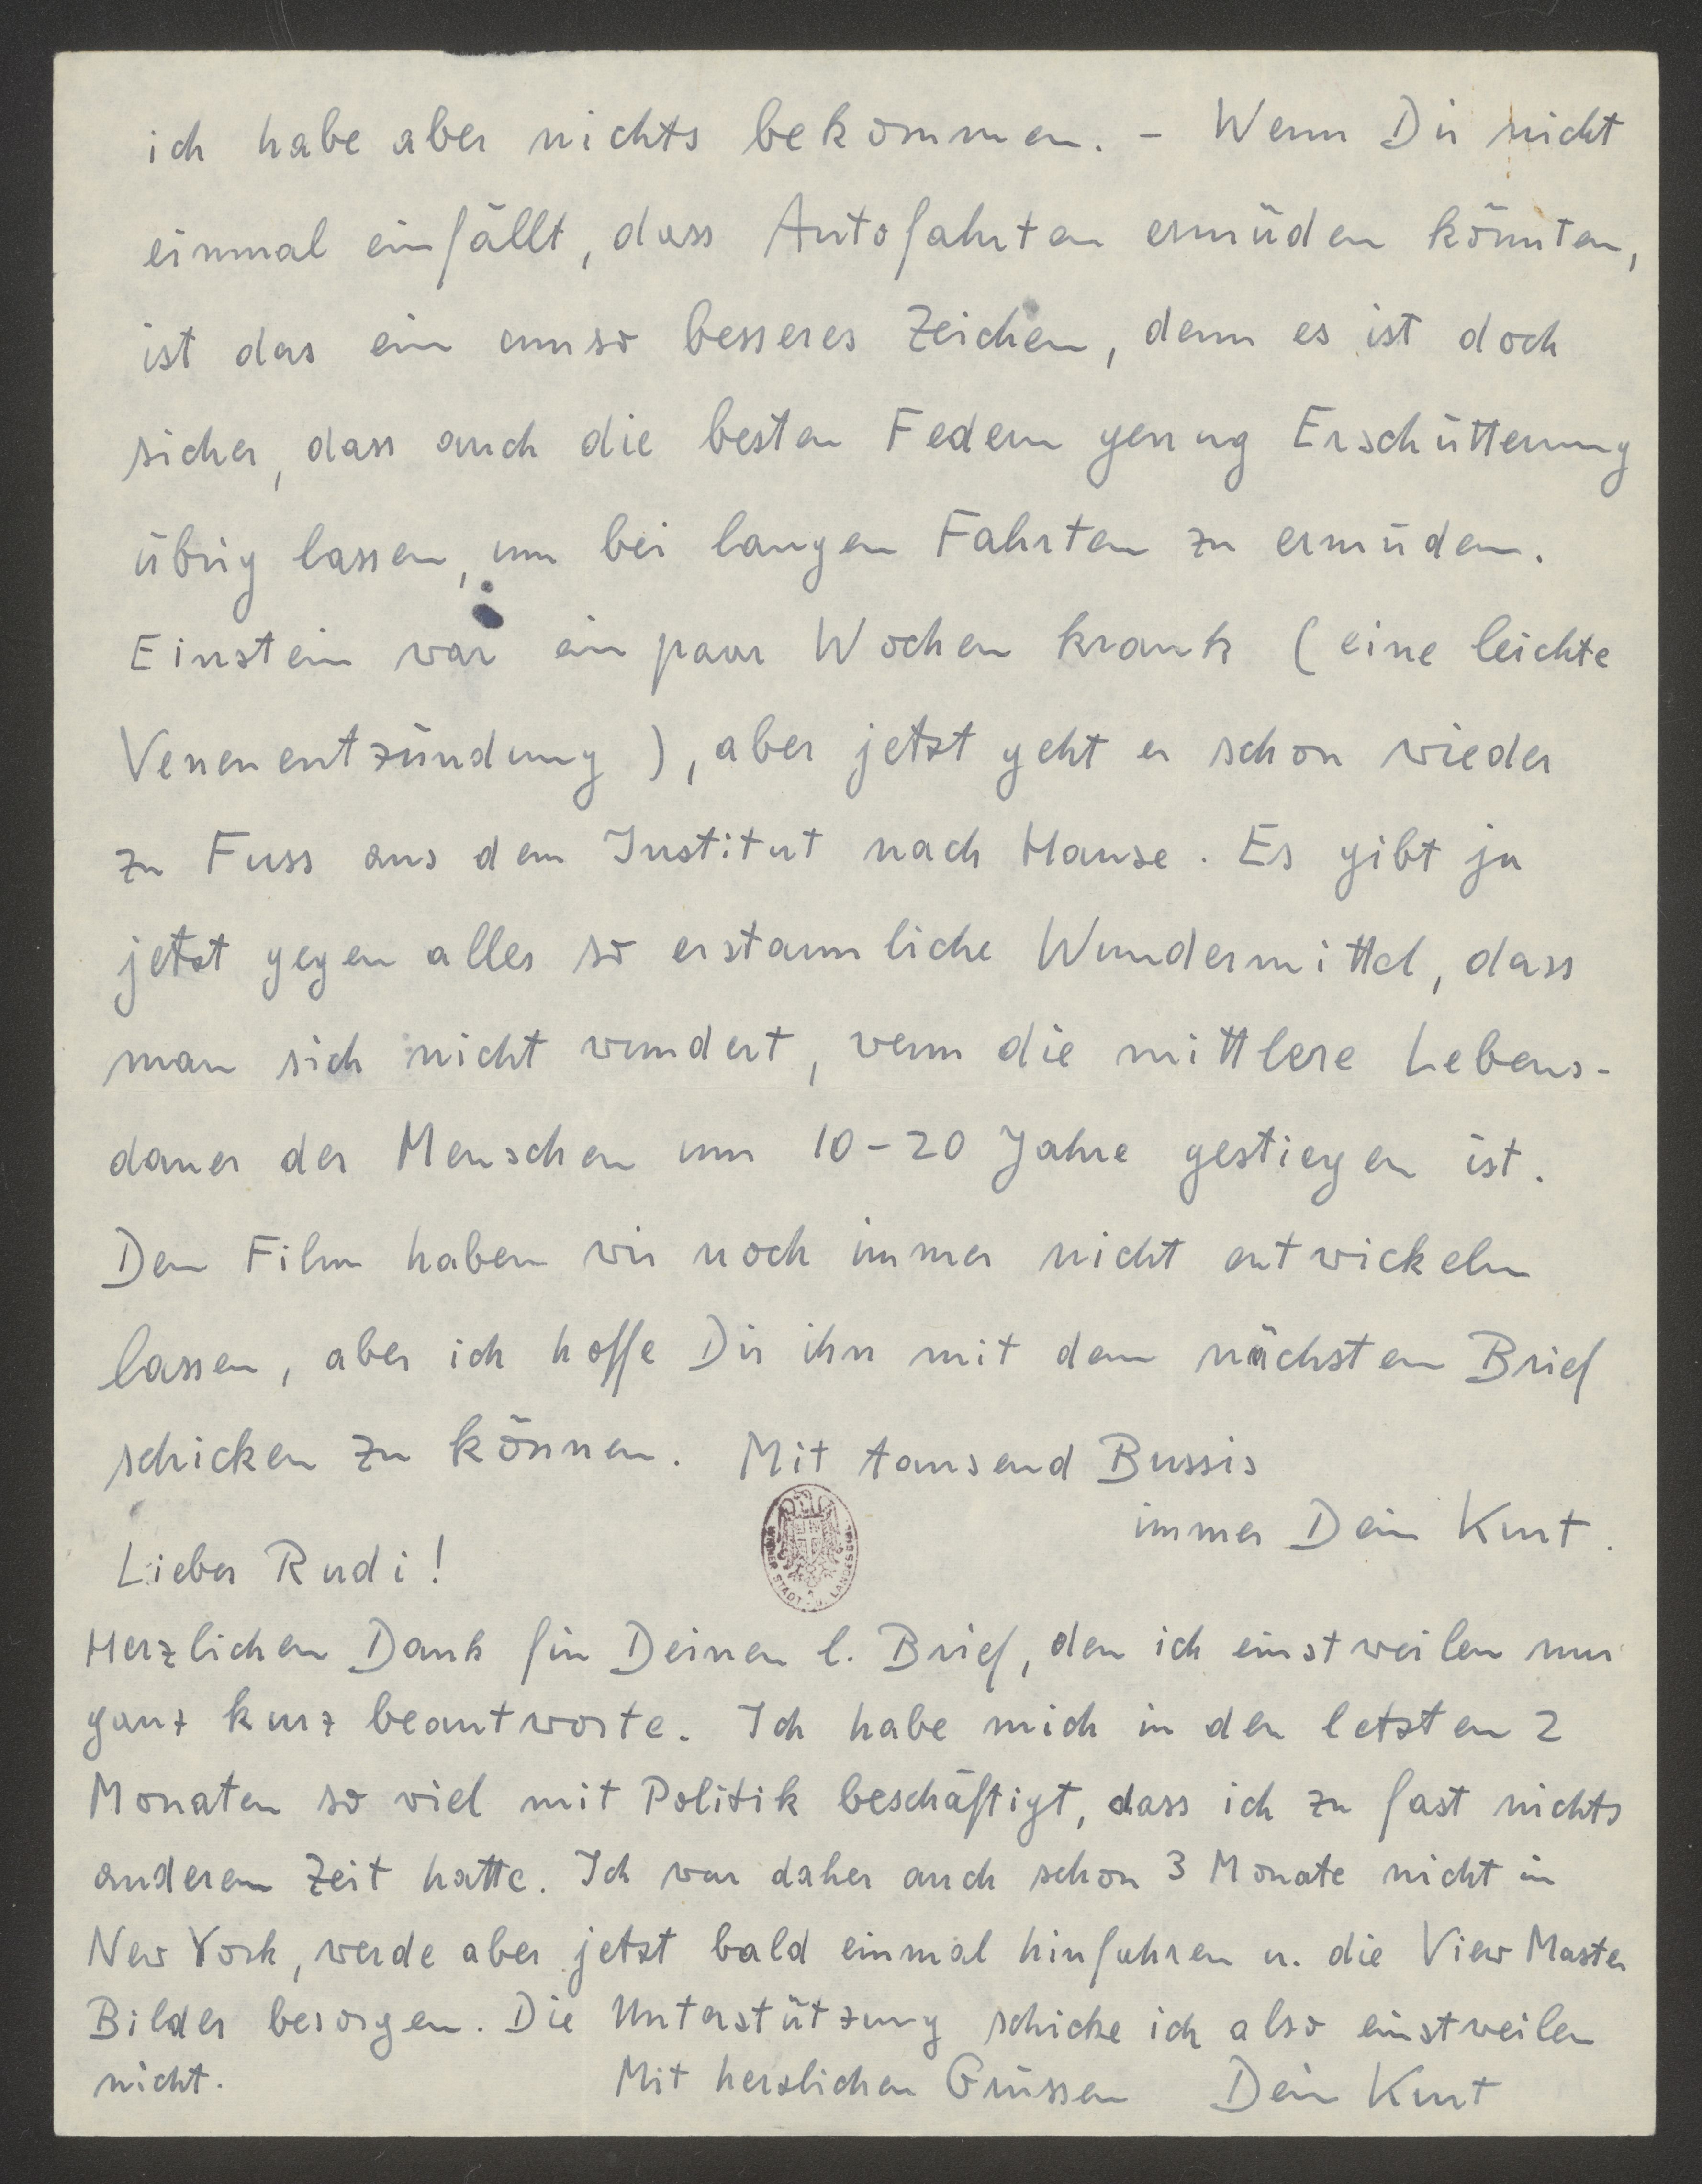 ich habe aber nichts bekommen. – Wenn Dir nicht
einmal einfällt, dass Autofahrten ermüden könnten,
ist das ein umso besseres Zeichen, denn es ist doch
sicher, dass auch die besten Federn genug Erschütterung
übrig lassen, um bei langen Fahrten zu ermüden.
Einstein war ein paar Wochen krank (eine leichte
Venenentzündung), aber jetzt geht er schon wieder
zu Fuss aus dem Institut nach Hause. Es gibt ja
jetzt gegen alles so erstaunliche Wundermittel, dass
man sich nicht wundert, wenn die mittlere Lebens-
dauer der Menschen um 10–20 Jahre gestiegen ist.
Den Film haben wir noch immer nicht entwickeln
lassen, aber ich hoffe Dir ihn mit dem nächsten Brief
schicken zu können. Mit tausend Bussis
immer Dein Kurt.
WIENER STADT- U. LANDESBIBL.
Lieber Rudi!
Herzlichen Dank für Deinen l. Brief, den ich einstweilen nur
ganz kurz beantworte. Ich habe mich in den letzten 2
Monaten so viel mit Politik beschäftigt, dass ich zu fast nichts
anderem Zeit hatte. Ich war daher auch schon 3 Monate nicht in
New York, werde aber jetzt bald einmal hinfahren u. die View Master
Bilder besorgen. Die Unterstützung schicke ich also einstweilen
nicht. Mit herzlichen Grüssen Dein Kurt